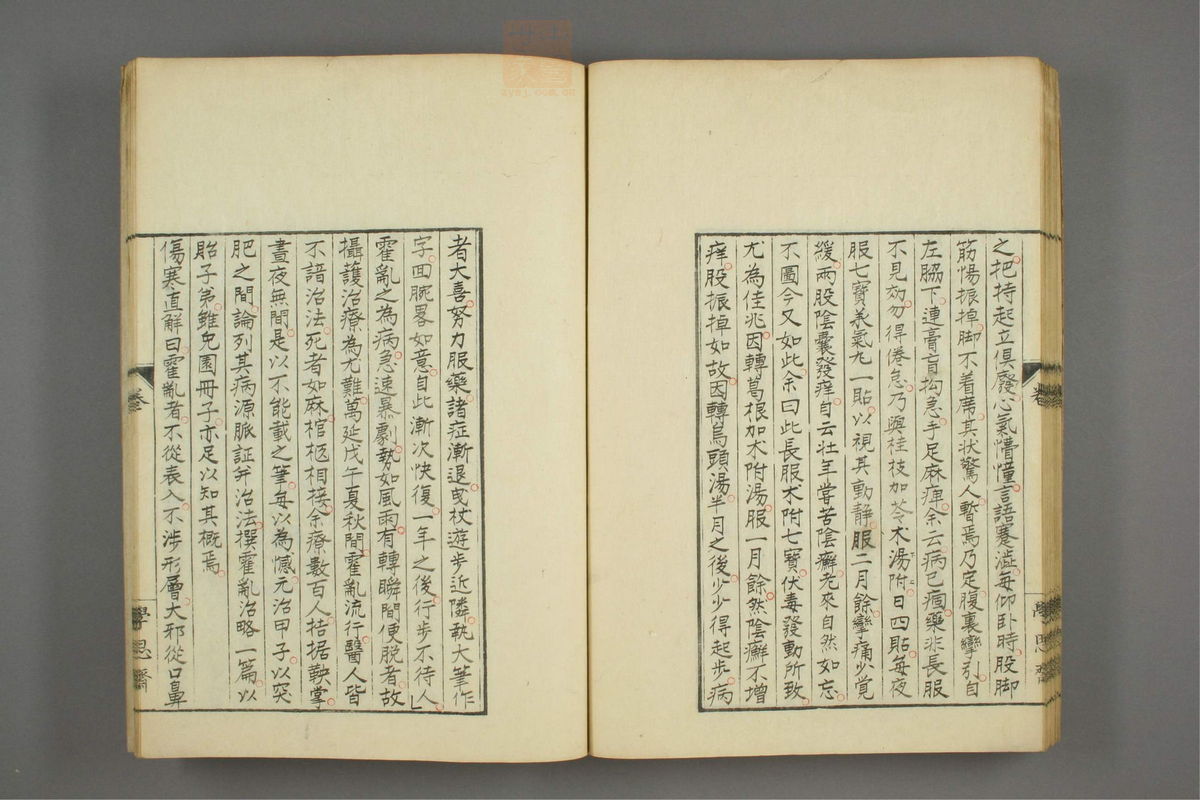 之把持起立俱廢心氣懵憧言語蹇澁每仰卧時股脚
筋惕振掉脚不着蓆其狀驚人暫焉乃定腹裏攣引自
左脇下連膏肓拘急手足麻痺余云病已痼藥非長服
不見効勿得倦怠乃與桂枝加苓朮湯附日四貼每夜
服七寶義氣丸一貼以視其動靜服二月餘攣痛少覺
緩兩股陰囊發痒自云壯年嘗苦陰癬老來自然如忘
不圖今又如此余曰此長服朮附七寶伏毒發動所致
尤為佳兆因轉葛根加朮附湯服一月餘然陰癬不增
痒股振掉如故因轉烏頭湯半月之後少少得起步病
卷
學思齋
者大喜努力服藥諸症漸退曳杖遊步近隣執大筆作
字回腕畧如意自此漸次快復一年之後行步不待人
霍亂之為病急速暴劇勢如風雨有轉瞬間便脫者故
攝護治療為尤難萬延戊午夏秋間霍亂流行醫人皆
不諳治法死者如麻棺柩相接余療數百人拮据鞅掌
晝夜無間是以不能載之筆每以為憾元治甲子以突
肥之間論列其病源脈証弁治法撰霍亂治略一篇以
貽子弟雖兔園冊子亦足以知其概焉
傷寒直解曰霍亂者不從表入不涉形層大邪從口鼻
卷
學思齋
zysj.com.cn